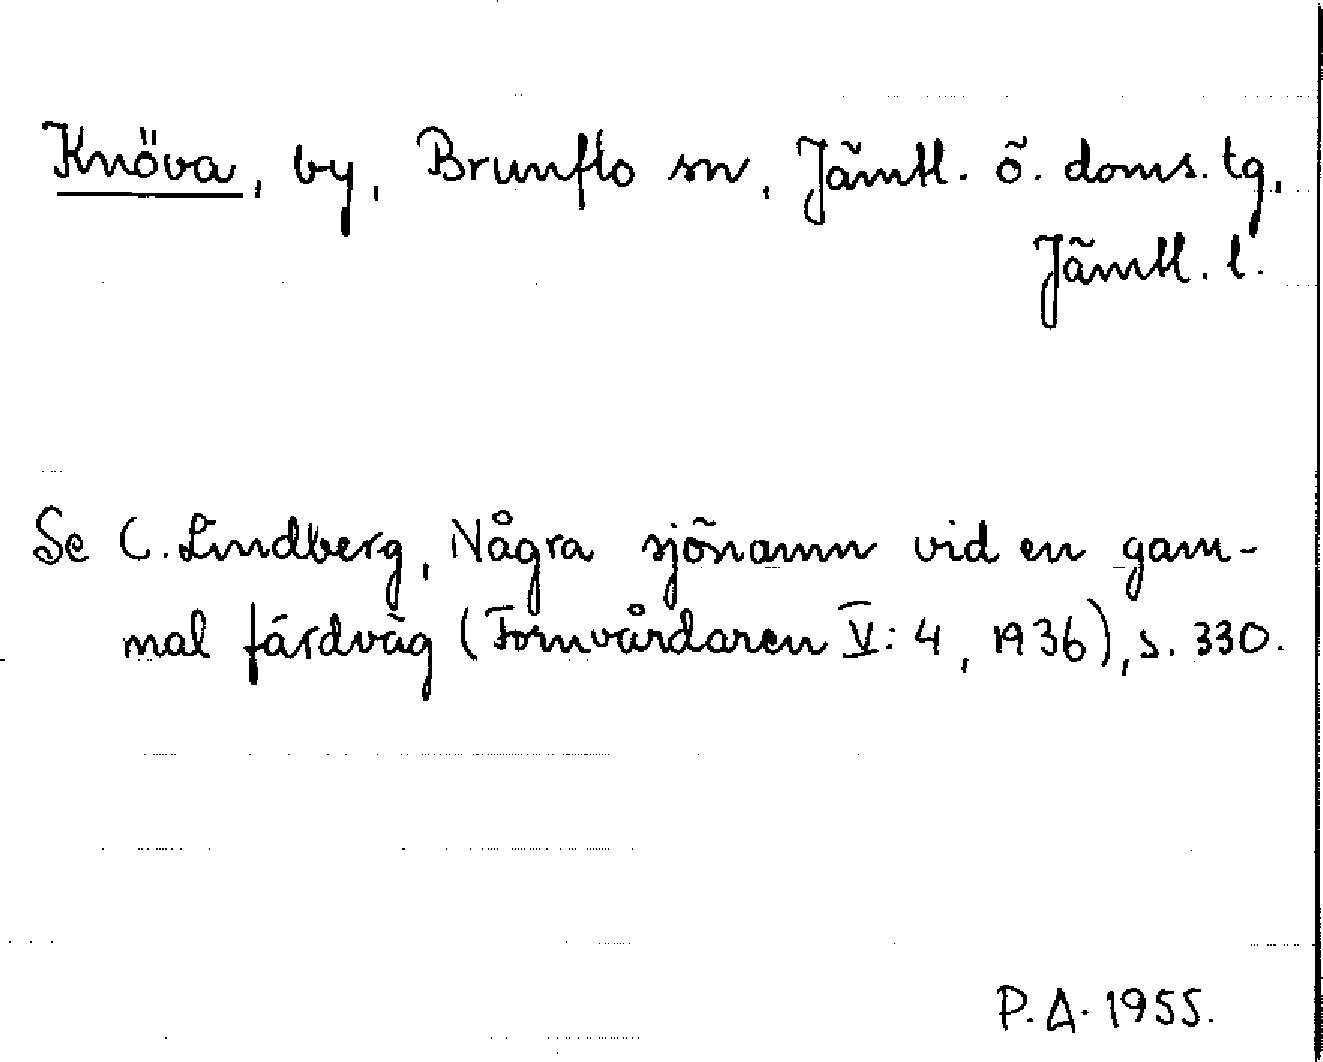 Knöva, by, Brunflo sn, Jämtl. ö. doms. tg,
Jämtl. l.
Se C. Lindberg, Några sjönamn vid en gam-
mal färdväg (Fornvårdaren V: 4, 1936), s. 330.
P. A. 1955.